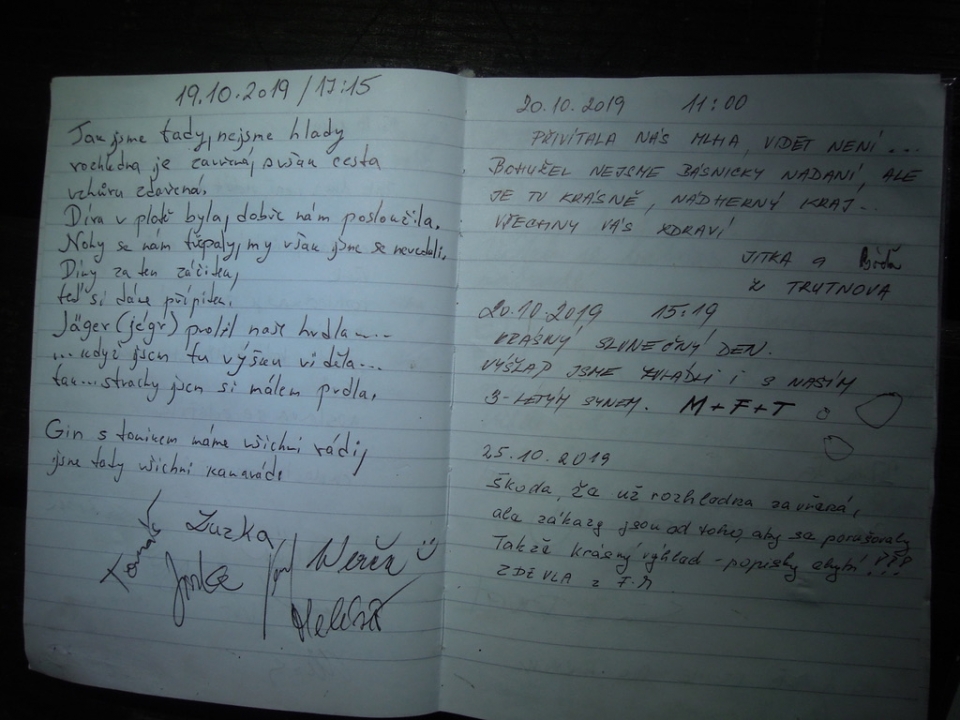 19.10.2019 / 17:15
Jak jsme tady, nejsme hlady
rozhledna je zavřená, avšak cesta
vzhůru zdařená.
Díra v plotě byla, dobře nám posloužila.
Nohy se nám třepaly, my však jsme se nevzdali.
Díky za ten zážitek,
teď si dáme přípitek.
Jäger (jégr) prolil naše hrdla....
...když jsem tu výšku viděla...
tak...strachy jsem si málem prdla.
Gin s tonikem máme všichni rádi,
jsme tady všichni kamarádi
Tomáš Zuzka
Verča
20.10.2019 11:00
PŘIVÍTALA NÁS MLHA, VIDĚT NENÍ...
BOHUŽEL NEJSME BÁSNICKY NADANÍ, ALE
JE TU KRÁSNĚ, NÁDHERNÝ KRAJ...
VŠECHNY VÁS ZDRAVÍ
JITKA a
Z TRUTNOVA
20.10.2019 15:19
KRÁSNÝ SLUNEČNÝ DEN.
VÝŠLAP JSME ZVLÁDLI I S NAŠÍM
3-LETÝM SYNEM. M+F+T
25.10.2019
Škoda, že už rozhledna zavřená,
ale zákazy jsou od toho, aby se porušovaly
Takže krásný výhled - popisky chybí!!!
Z F.M